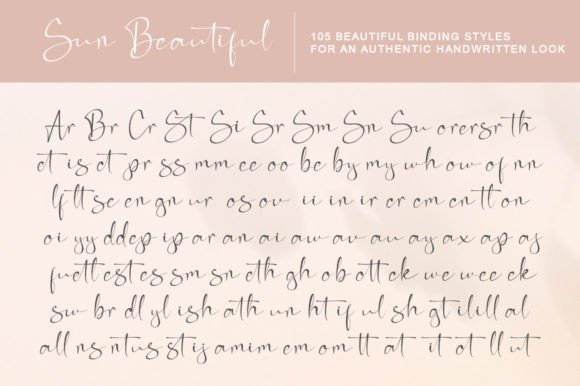 Sun Beautiful
105 BEAUTIFUL BINDING STYLES
FOR AN AUTHENTIC HANDWRITTEN LOOK
Ar Br Cr St Si Sr Sm Sn Su or er sr th
ct is ct pr ss mm ee oo be by my wh ow of nn
lf lt se en gn ur os ov ii in ir er em en tl on
oi yy dd ep ip ar an ai aw av au ay ax ap as
fu ett est es sm sn eth gh ob ott ek we wee ck
sw br dl yl ish ath un ht if ul sh gt il ill al
all ns nt us st ij am im em om tt at it ot ll ut